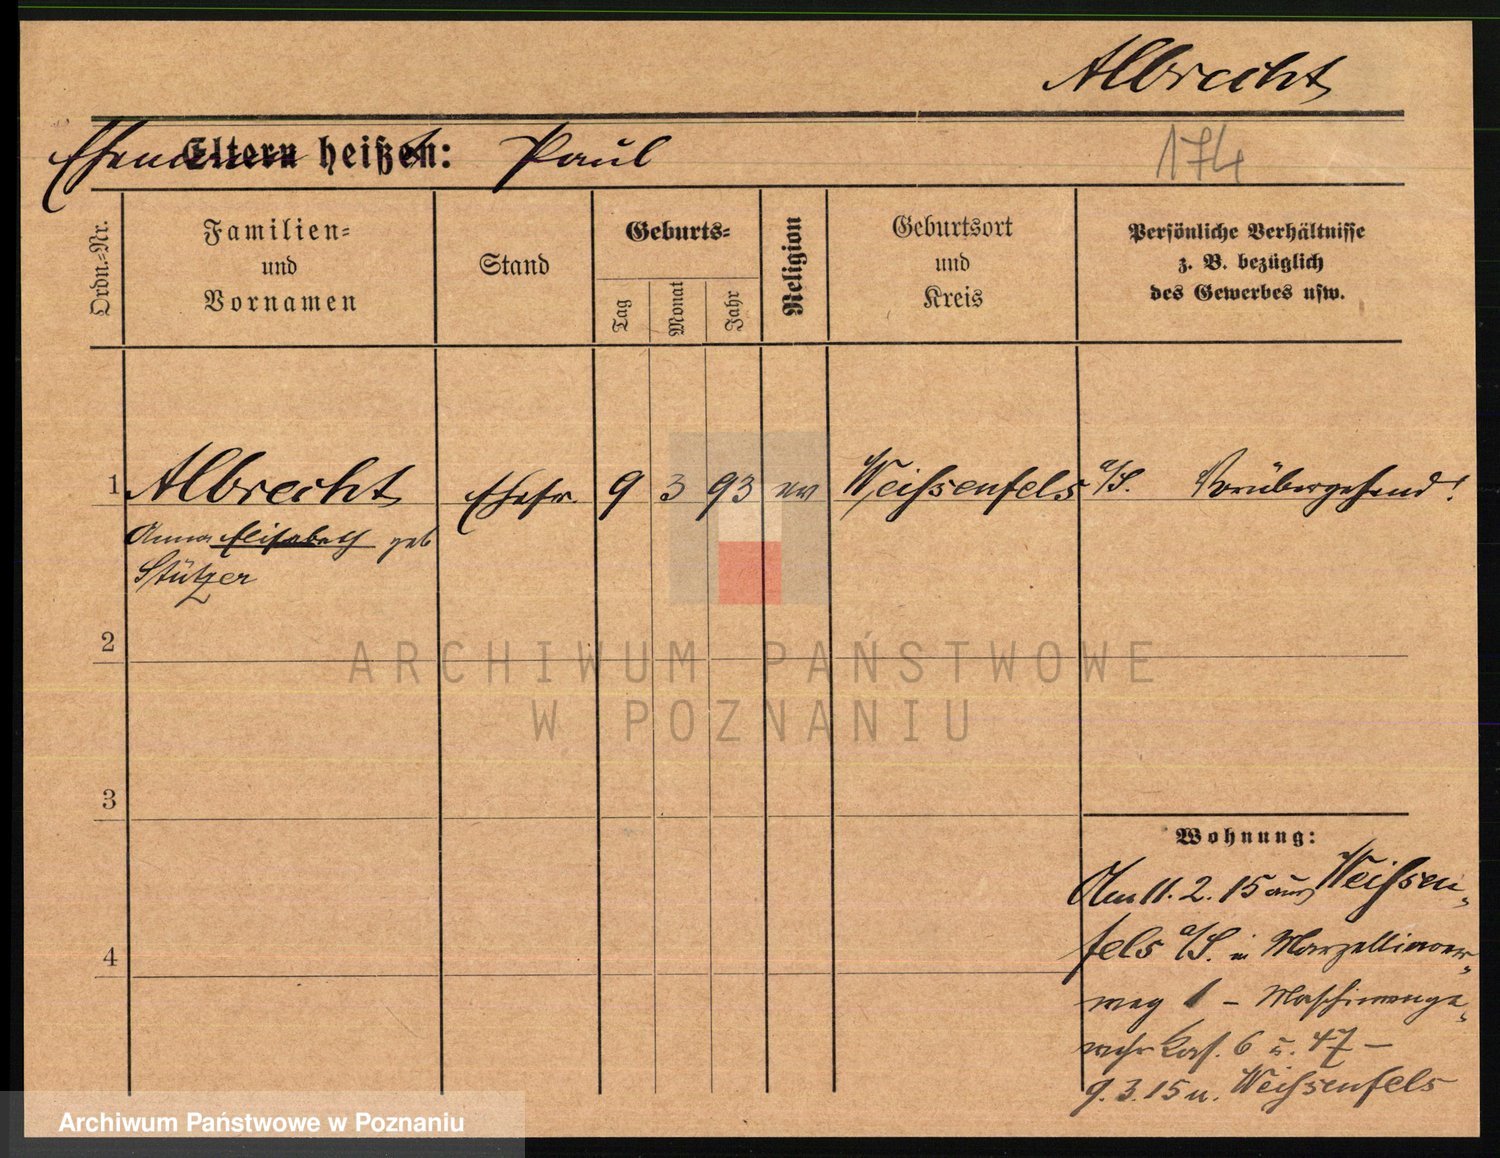 Albrecht
Ehemann heißt: Paul
174
Ordn.-Nr.
Familien-
und
Vornamen
Stand
Geburts-
Tag
Monat
Jahr
Religion
Geburtsort
und
Kreis
Persönliche Verhältnisse
z. B. bezüglich
des Gewerbes usw.
1 Albrecht Ehefr. 9 3 93 ev Weissenfels a/S. Vorübergehend!
Anna Elisabeth geb
Stützer
2
3
4
Wohnung:
Am 11. 2. 15 aus Weissen-
fels a/S. in
weg 1 – Maschinenge-
wehr Kas. 6 u. 47 –
9. 3. 15 n. Weissenfels
ARCHIWUM PAŃSTWOWE
W POZNANIU
Archiwum Państwowe w Poznaniu